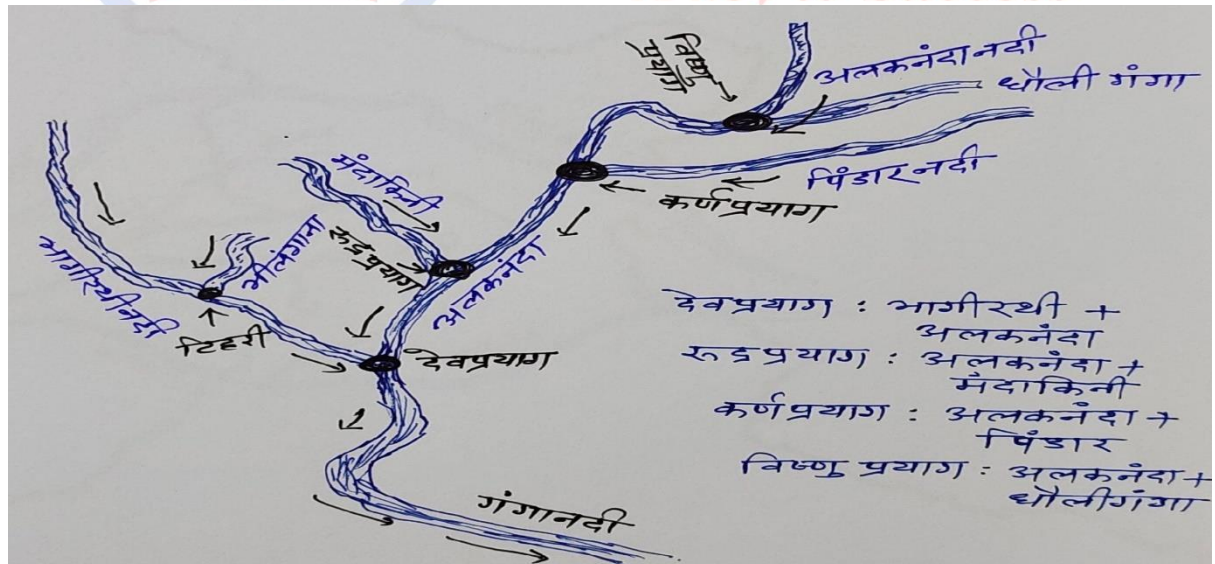 विष्णु
प्रयाग
अलकनंदा नदी
धौली गंगा
पिंडार नदी
कर्णप्रयाग
मंदाकिनी
रूद्रप्रयाग
अलकनंदा
भीलंगाना
भागीरथी नदी
टिहरी
देवप्रयाग
गंगा नदी
देवप्रयाग : भागीरथी +
अलकनंदा
रूद्रप्रयाग : अलकनंदा +
मंदाकिनी
कर्णप्रयाग : अलकनंदा +
पिंडार
विष्णु प्रयाग : अलकनंदा +
धौलीगंगा